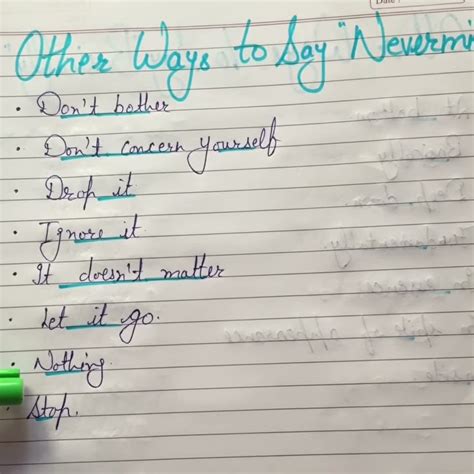 Date :
"Other Ways to Say "Neverm
• Don't bother
• Don't concern yourself
• Drop it
• Ignore it
• It doesn't matter
• Let it go.
• Nothing.
• Stop.